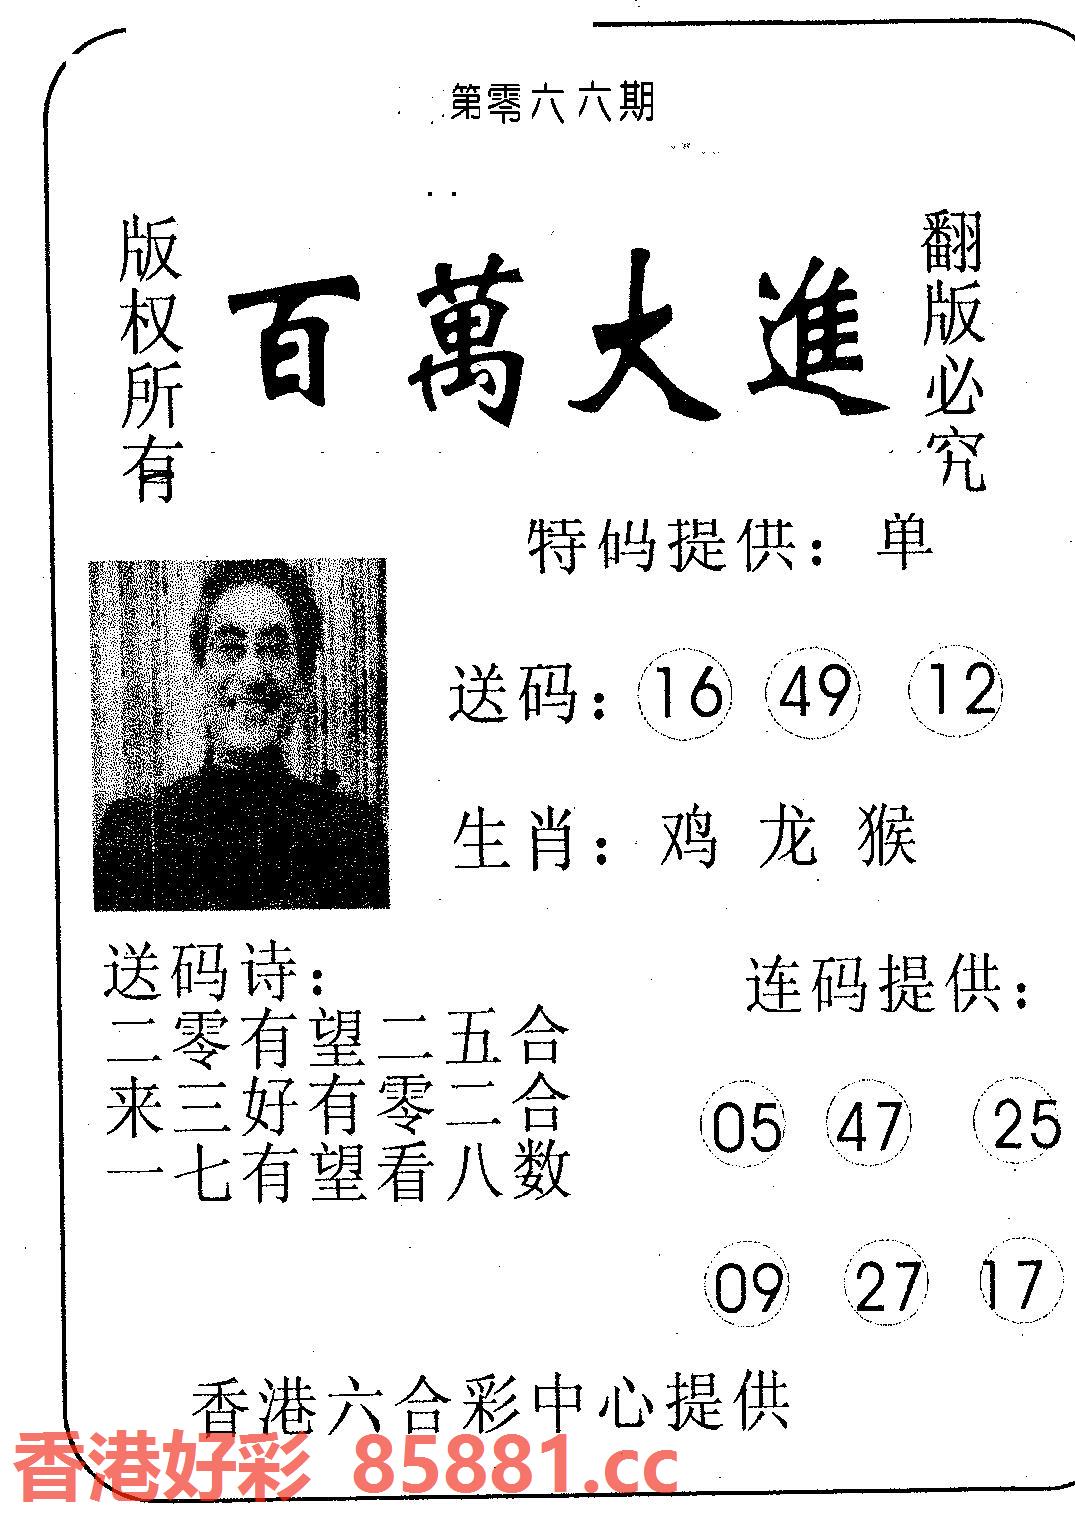 第零六六期
版权所有
百萬大進
翻版必究
特码提供：单
送码：16 49 12
生肖：鸡 龙 猴
送码诗：
二零有望二五合
来三好有零二合
一七有望看八数
连码提供：
05 47 25
09 27 17
香港六合彩中心提供
香港好彩 85881.cc